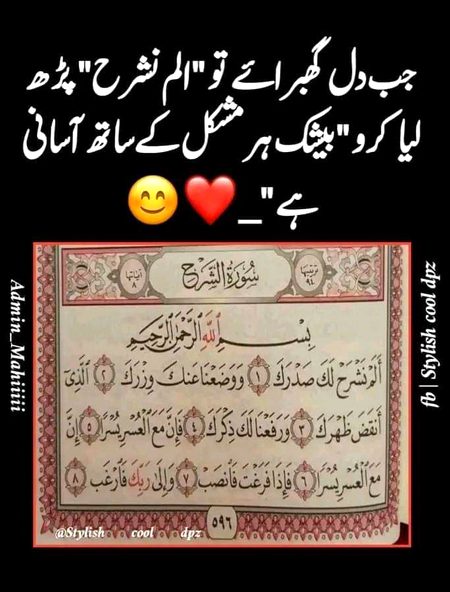 جب دل گھبرائے تو "الم نشرح" پڑھ
لیا کرو "بیشک ہر مشکل کے ساتھ آسانی
ہے"_❤️😊
ترتيبها ٩٤
سُورَةُ الشَّرْحِ
آياتها ٨
بِسْمِ اللَّهِ الرَّحْمَٰنِ الرَّحِيمِ
أَلَمْ نَشْرَحْ لَكَ صَدْرَكَ ١ وَوَضَعْنَا عَنكَ وِزْرَكَ ٢ ٱلَّذِىٓ
أَنقَضَ ظَهْرَكَ ٣ وَرَفَعْنَا لَكَ ذِكْرَكَ ٤ فَإِنَّ مَعَ ٱلْعُسْرِ يُسْرًا ٥ إِنَّ
مَعَ ٱلْعُسْرِ يُسْرًا ٦ فَإِذَا فَرَغْتَ فَٱنصَبْ ٧ وَإِلَىٰ رَبِّكَ فَٱرْغَب ٨
٥٩٦
@Stylish cool dpz
Admin_Mahiiiii
fb | Stylish cool dpz